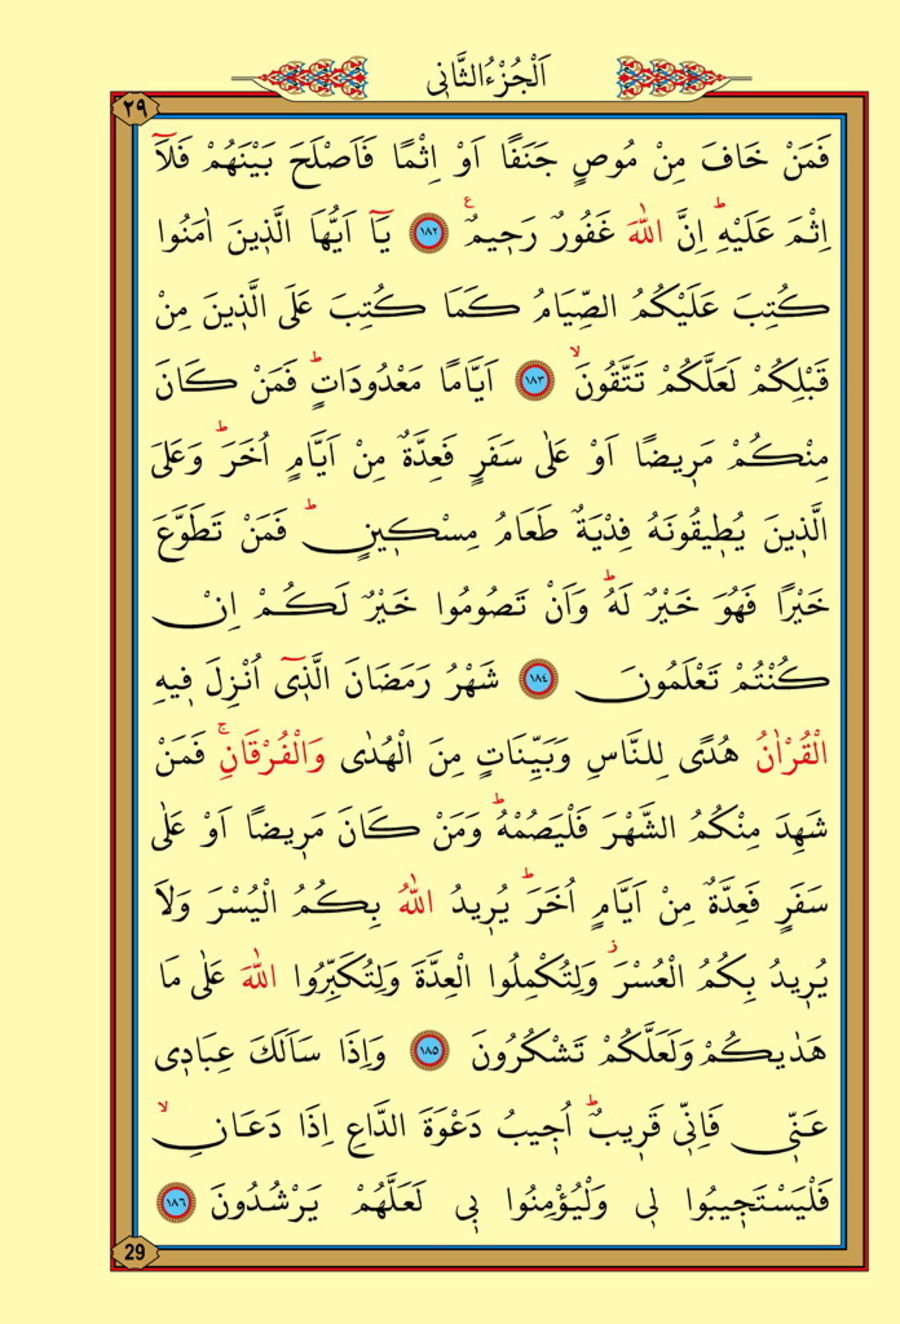 اَلْجُزْءُالثَّانٖى
٢٩
فَمَنْ خَافَ مِنْ مُوصٍ جَنَفًا اَوْ اِثْمًا فَاَصْلَحَ بَيْنَهُمْ فَلَآ
اِثْمَ عَلَيْهِؕ اِنَّ اللّٰهَ غَفُورٌ رَحٖيمٌࣖ ١٨٢ يَٓا اَيُّهَا الَّذٖينَ اٰمَنُوا
كُتِبَ عَلَيْكُمُ الصِّيَامُ كَمَا كُتِبَ عَلَى الَّذٖينَ مِنْ
قَبْلِكُمْ لَعَلَّكُمْ تَتَّقُونَۙ ١٨٣ اَيَّامًا مَعْدُودَاتٍؕ فَمَنْ كَانَ
مِنْكُمْ مَرٖيضًا اَوْ عَلٰى سَفَرٍ فَعِدَّةٌ مِنْ اَيَّامٍ اُخَرَؕ وَعَلَى
الَّذٖينَ يُطٖيقُونَهُ فِدْيَةٌ طَعَامُ مِسْكٖينٍؕ فَمَنْ تَطَوَّعَ
خَيْرًا فَهُوَ خَيْرٌ لَهُؕ وَاَنْ تَصُومُوا خَيْرٌ لَكُمْ اِنْ
كُنْتُمْ تَعْلَمُونَ ١٨٤ شَهْرُ رَمَضَانَ الَّذٖٓى اُنْزِلَ فٖيهِ
الْقُرْاٰنُ هُدًى لِلنَّاسِ وَبَيِّنَاتٍ مِنَ الْهُدٰى وَالْفُرْقَانِۚ فَمَنْ
شَهِدَ مِنْكُمُ الشَّهْرَ فَلْيَصُمْهُؕ وَمَنْ كَانَ مَرٖيضًا اَوْ عَلٰى
سَفَرٍ فَعِدَّةٌ مِنْ اَيَّامٍ اُخَرَؕ يُرٖيدُ اللّٰهُ بِكُمُ الْيُسْرَ وَلَا
يُرٖيدُ بِكُمُ الْعُسْرَؗ وَلِتُكْمِلُوا الْعِدَّةَ وَلِتُكَبِّرُوا اللّٰهَ عَلٰى مَا
هَدٰيكُمْ وَلَعَلَّكُمْ تَشْكُرُونَ ١٨٥ وَاِذَا سَاَلَكَ عِبَادٖى
عَنّٖى فَاِنّٖى قَرٖيبٌؕ اُجٖيبُ دَعْوَةَ الدَّاعِ اِذَا دَعَانِۙ
فَلْيَسْتَجٖيبُوا لٖى وَلْيُؤْمِنُوا بٖى لَعَلَّهُمْ يَرْشُدُونَ ١٨٦
29